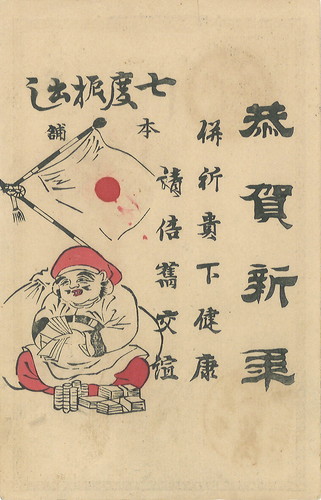 恭賀新年
併祈貴下健康
請倍舊交誼
七度振出し
本舗